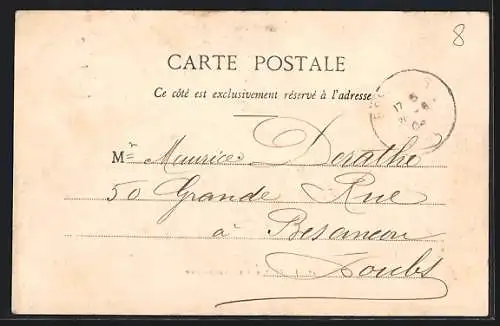 8
CARTE POSTALE
Ce côté est exclusivement réservé à l'adresse
Mr Maurice Derathe
50 Grande Rue
à Besancon
Doubs